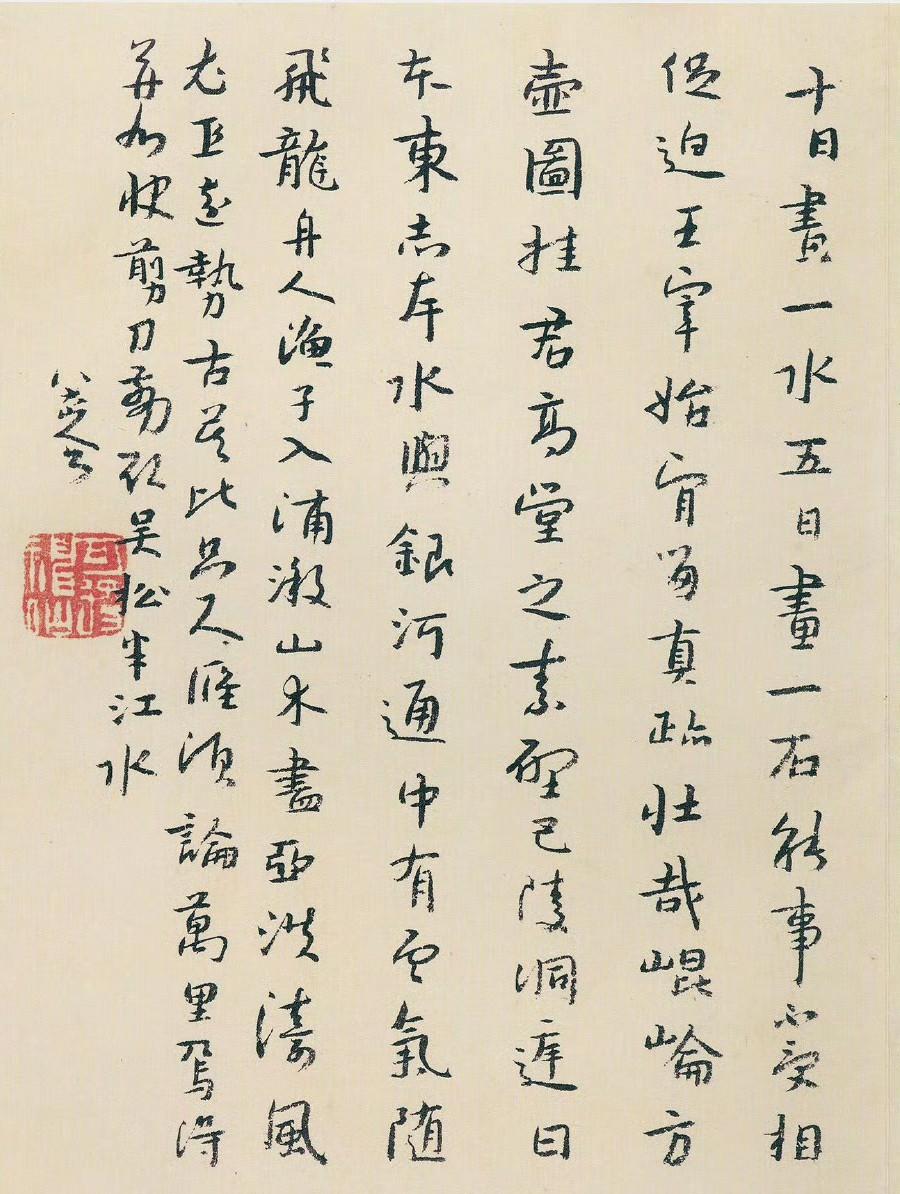 十日畫一水五日畫一石能事不受相
促迫王宰始肎留真跡壯哉崐崘方
壺圖挂君高堂之素壁巴陵洞庭日
本東赤岸水與銀河通中有雲氣随
飛龍舟人漁子入浦漵山木盡亞洪濤風
尤工遠勢古莫比咫尺應須論萬里焉得
并州快剪刀剪取吳松半江水
八大山人
可得神仙